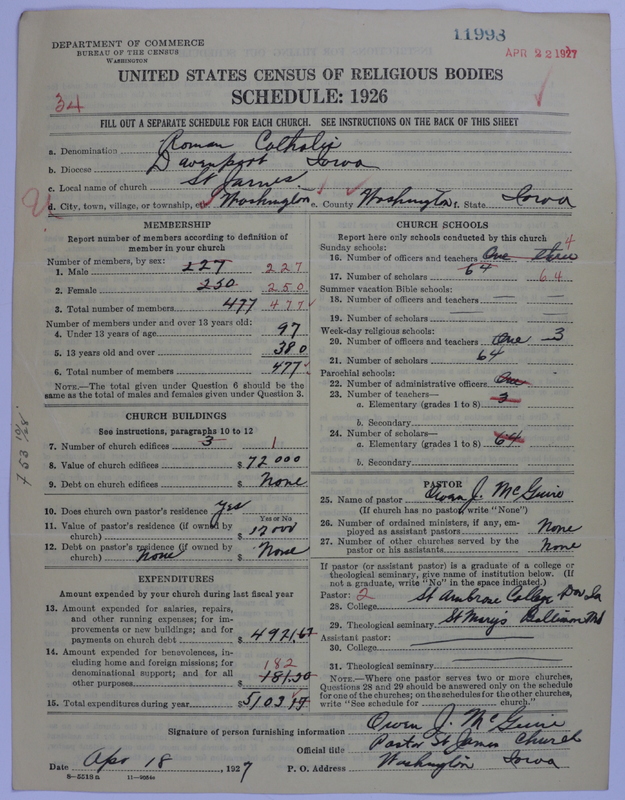 11998
APR 22 1927
DEPARTMENT OF COMMERCE
BUREAU OF THE CENSUS
WASHINGTON
UNITED STATES CENSUS OF RELIGIOUS BODIES
SCHEDULE: 1926
34
FILL OUT A SEPARATE SCHEDULE FOR EACH CHURCH. SEE INSTRUCTIONS ON THE BACK OF THIS SHEET
a. Denomination Roman Catholic
b. Diocese Davenport Iowa
c. Local name of church St James
d. City, town, village, or township, etc. Washington e. County Washington f. State Iowa
MEMBERSHIP
Report number of members according to definition of
member in your church
Number of members, by sex:
1. Male 227 227
2. Female 250 250
3. Total number of members 477 477
Number of members under and over 13 years old:
4. Under 13 years of age 97
5. 13 years old and over 380
6. Total number of members 477
NOTE.—The total given under Question 6 should be the
same as the total of males and females given under Question 3.
CHURCH BUILDINGS
See instructions, paragraphs 10 to 12
7. Number of church edifices 3 1
8. Value of church edifices $ 72000
9. Debt on church edifices $ None
10. Does church own pastor's residence yes
Yes or No
11. Value of pastor's residence (if owned by
church) $ 12000
12. Debt on pastor's residence (if owned by
church) None $ None
EXPENDITURES
Amount expended by your church during last fiscal year
13. Amount expended for salaries, repairs,
and other running expenses; for im-
provements or new buildings; and for
payments on church debt $ 4921.67
14. Amount expended for benevolences, in-
cluding home and foreign missions; for
denominational support; and for all
other purposes 182 181.50
15. Total expenditures during year $ 5103
CHURCH SCHOOLS
Report here only schools conducted by this church
Sunday schools: 4
16. Number of officers and teachers One three
17. Number of scholars 64 64
Summer vacation Bible schools:
18. Number of officers and teachers
19. Number of scholars
Week-day religious schools:
20. Number of officers and teachers One 3
21. Number of scholars 64
Parochial schools:
22. Number of administrative officers One
23. Number of teachers—
a. Elementary (grades 1 to 8) 3
b. Secondary
24. Number of scholars—
a. Elementary (grades 1 to 8) 64
b. Secondary
PASTOR
25. Name of pastor Owen J. McGuire
(If church has no pastor, write "None")
26. Number of ordained ministers, if any, em-
ployed as assistant pastors None
27. Number of other churches served by the
pastor or his assistants None
If pastor (or assistant pastor) is a graduate of a college or
theological seminary, give name of institution below. (If
not a graduate, write "No" in the space indicated.)
Pastor: 2
28. College St Ambrose College Dav Ia
29. Theological seminary St Mary's Baltimore Md
Assistant pastor:
30. College
31. Theological seminary
NOTE.—Where one pastor serves two or more churches,
Questions 28 and 29 should be answered only on the schedule
for one of the churches; on the schedules for the other churches,
write "See schedule for ______ church."
Signature of person furnishing information Owen J. McGuire
Official title Pastor St James Church
Date Apr 18, 1927 P. O. Address Washington Iowa